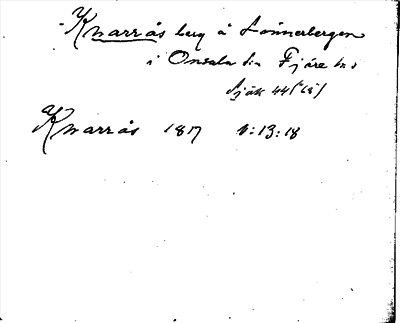 Knarrås berg å Lönnerbergen
i Onsala sn Fjäre hd
Sjök 44 ("18)
Knarrås 1817 1:13:18